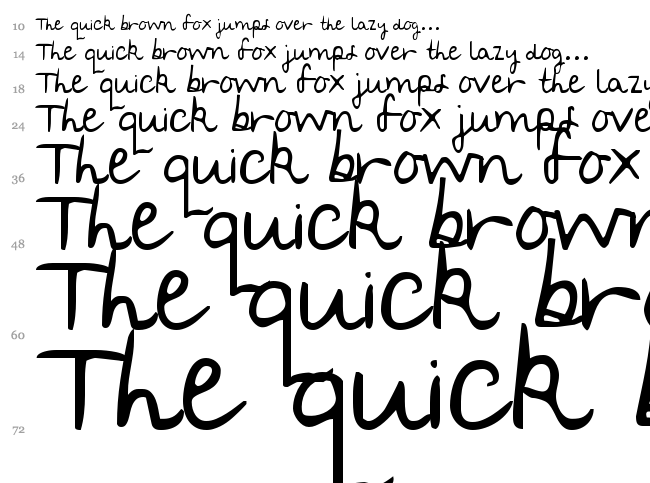 10 The quick brown fox jumps over the lazy dog...
14 The quick brown fox jumps over the lazy dog...
18 The quick brown fox jumps over the lazy
24 The quick brown fox jumps ove
36 The quick brown fox
48 The quick brown
60 The quick bro
72 The quick b